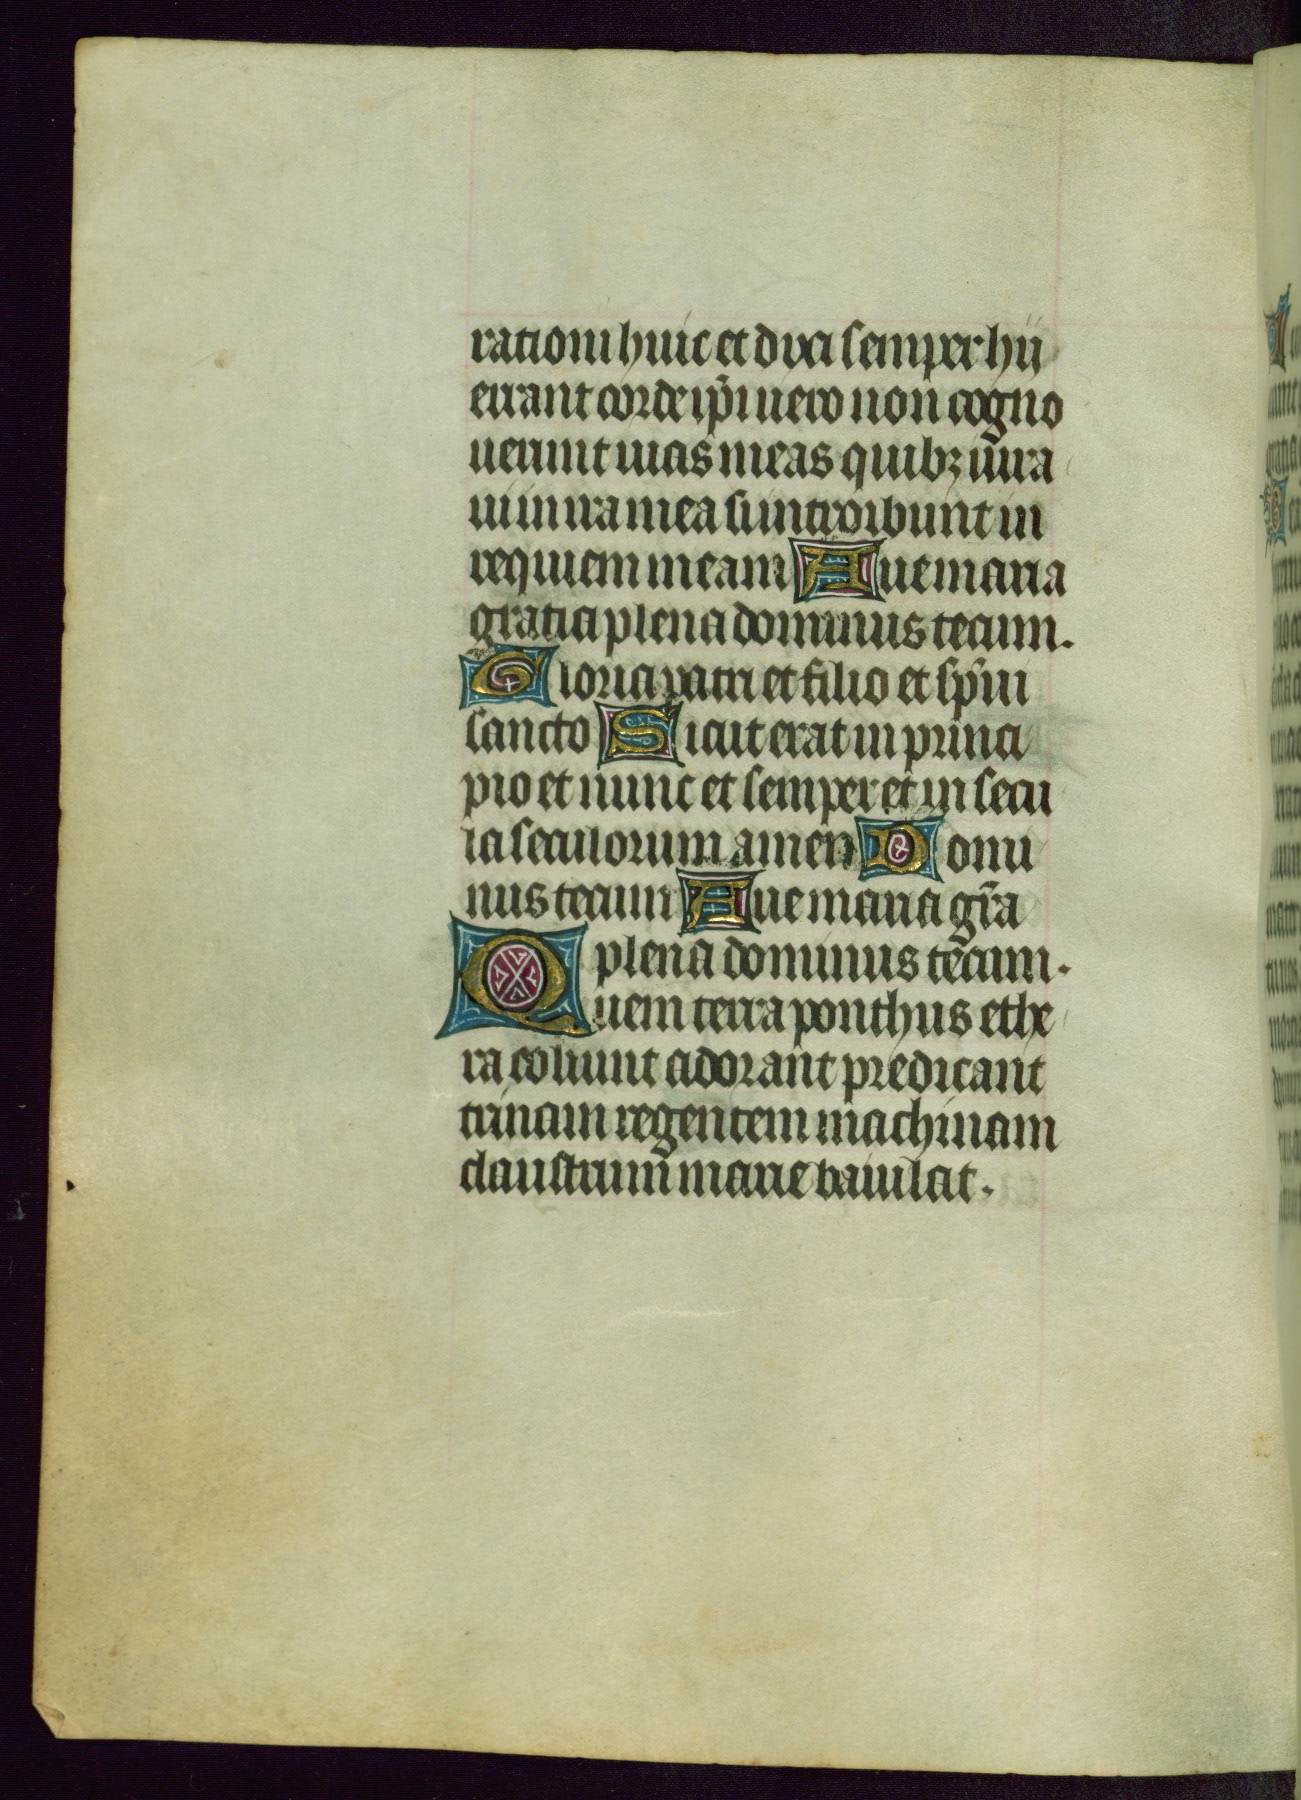 rationi huic et dixi semper hii
errant corde ip̄i uero non cogno
uerunt uias meas quibꝫ iura
ui in ira mea si introibunt in
requiem meam Aue maria
gratia plena dominus tecum.
Gloria patri et filio et sp̄ui
sancto Sicut erat in princi
pio et nunc et semper et in secu
la seculorum amen Domi
nus tecum Aue maria gr̄a
plena dominus tecum.
Quem terra ponthus ethe
ra colunt adorant predicant
trinam regentem machinam
claustrum marie baiulat.